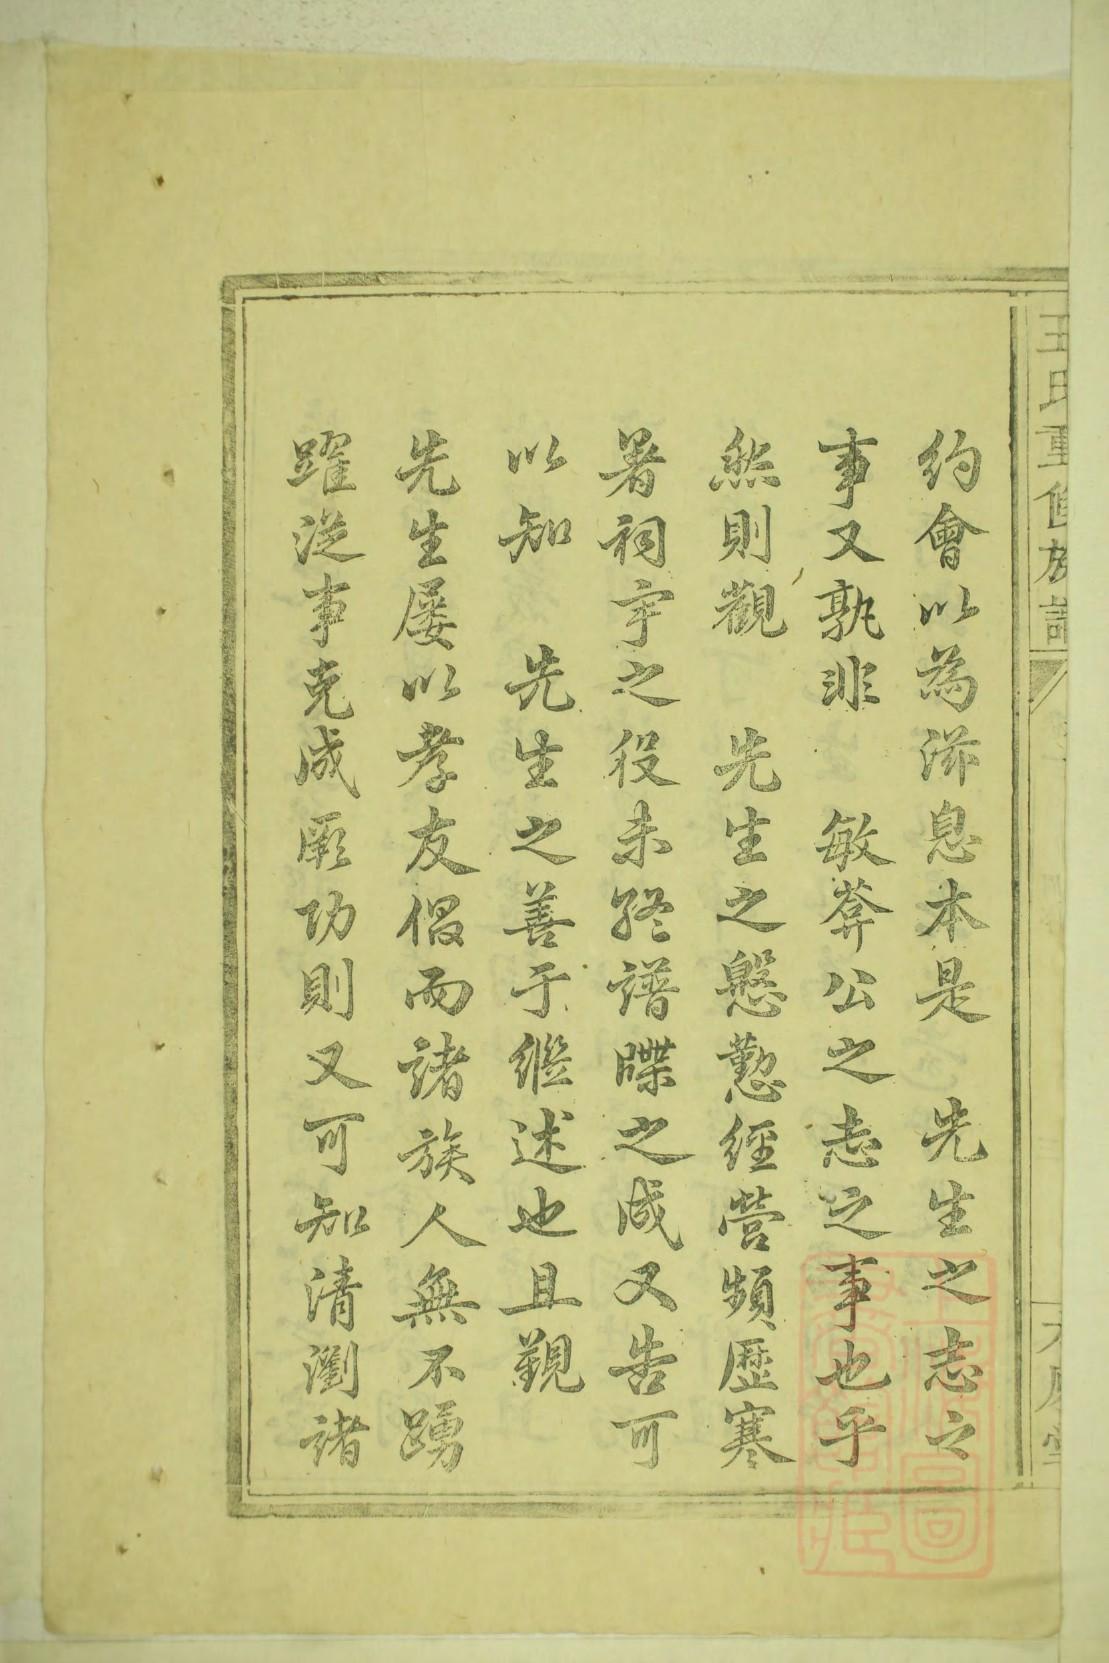 王氏重修族譜
約會以為滋息本是　先生之志之
事又孰非　敏莽公之志之事也乎
然則觀　先生之慇懃經營頻歷寒
暑祠宇之役未終譜牒之成又告可
以知　先生之善于繼述也且觀
先生屢以孝友倡而諸族人無不踴
躍從事克成厥功則又可知清瀏諸